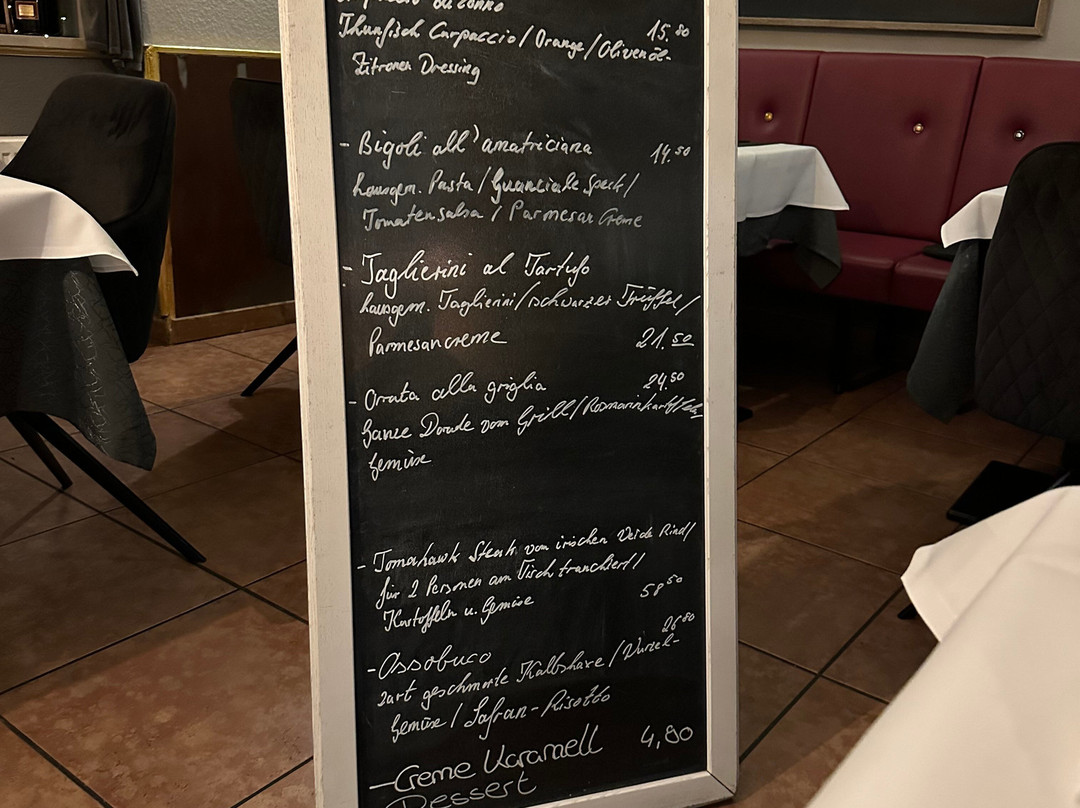 Thunfisch Carpaccio/Orange/Olivenöl- 15.80
Zitronen Dressing
- Bigoli all'amatriciana 14.50
hausgem. Pasta/Guanciale Speck/
Tomatensalsa/Parmesan Creme
- Taglierini al Tartufo
hausgem. Taglierini/schwarzer Trüffel/
Parmesancreme 21.50
- Orata alla griglia 24.50
Ganze Dorade vom Grill/Rosmarinkartoffeln
Gemüse
- Tomahawk Steak vom irischen Weide Rind/
für 2 Personen am Tisch tranchiert/
Kartoffeln u. Gemüse 58.50
- Ossobuco 26.80
zart geschmorte Kalbshaxe/Wurzel-
Gemüse/Safran-Risotto
- Creme Karamell 4,80
Dessert